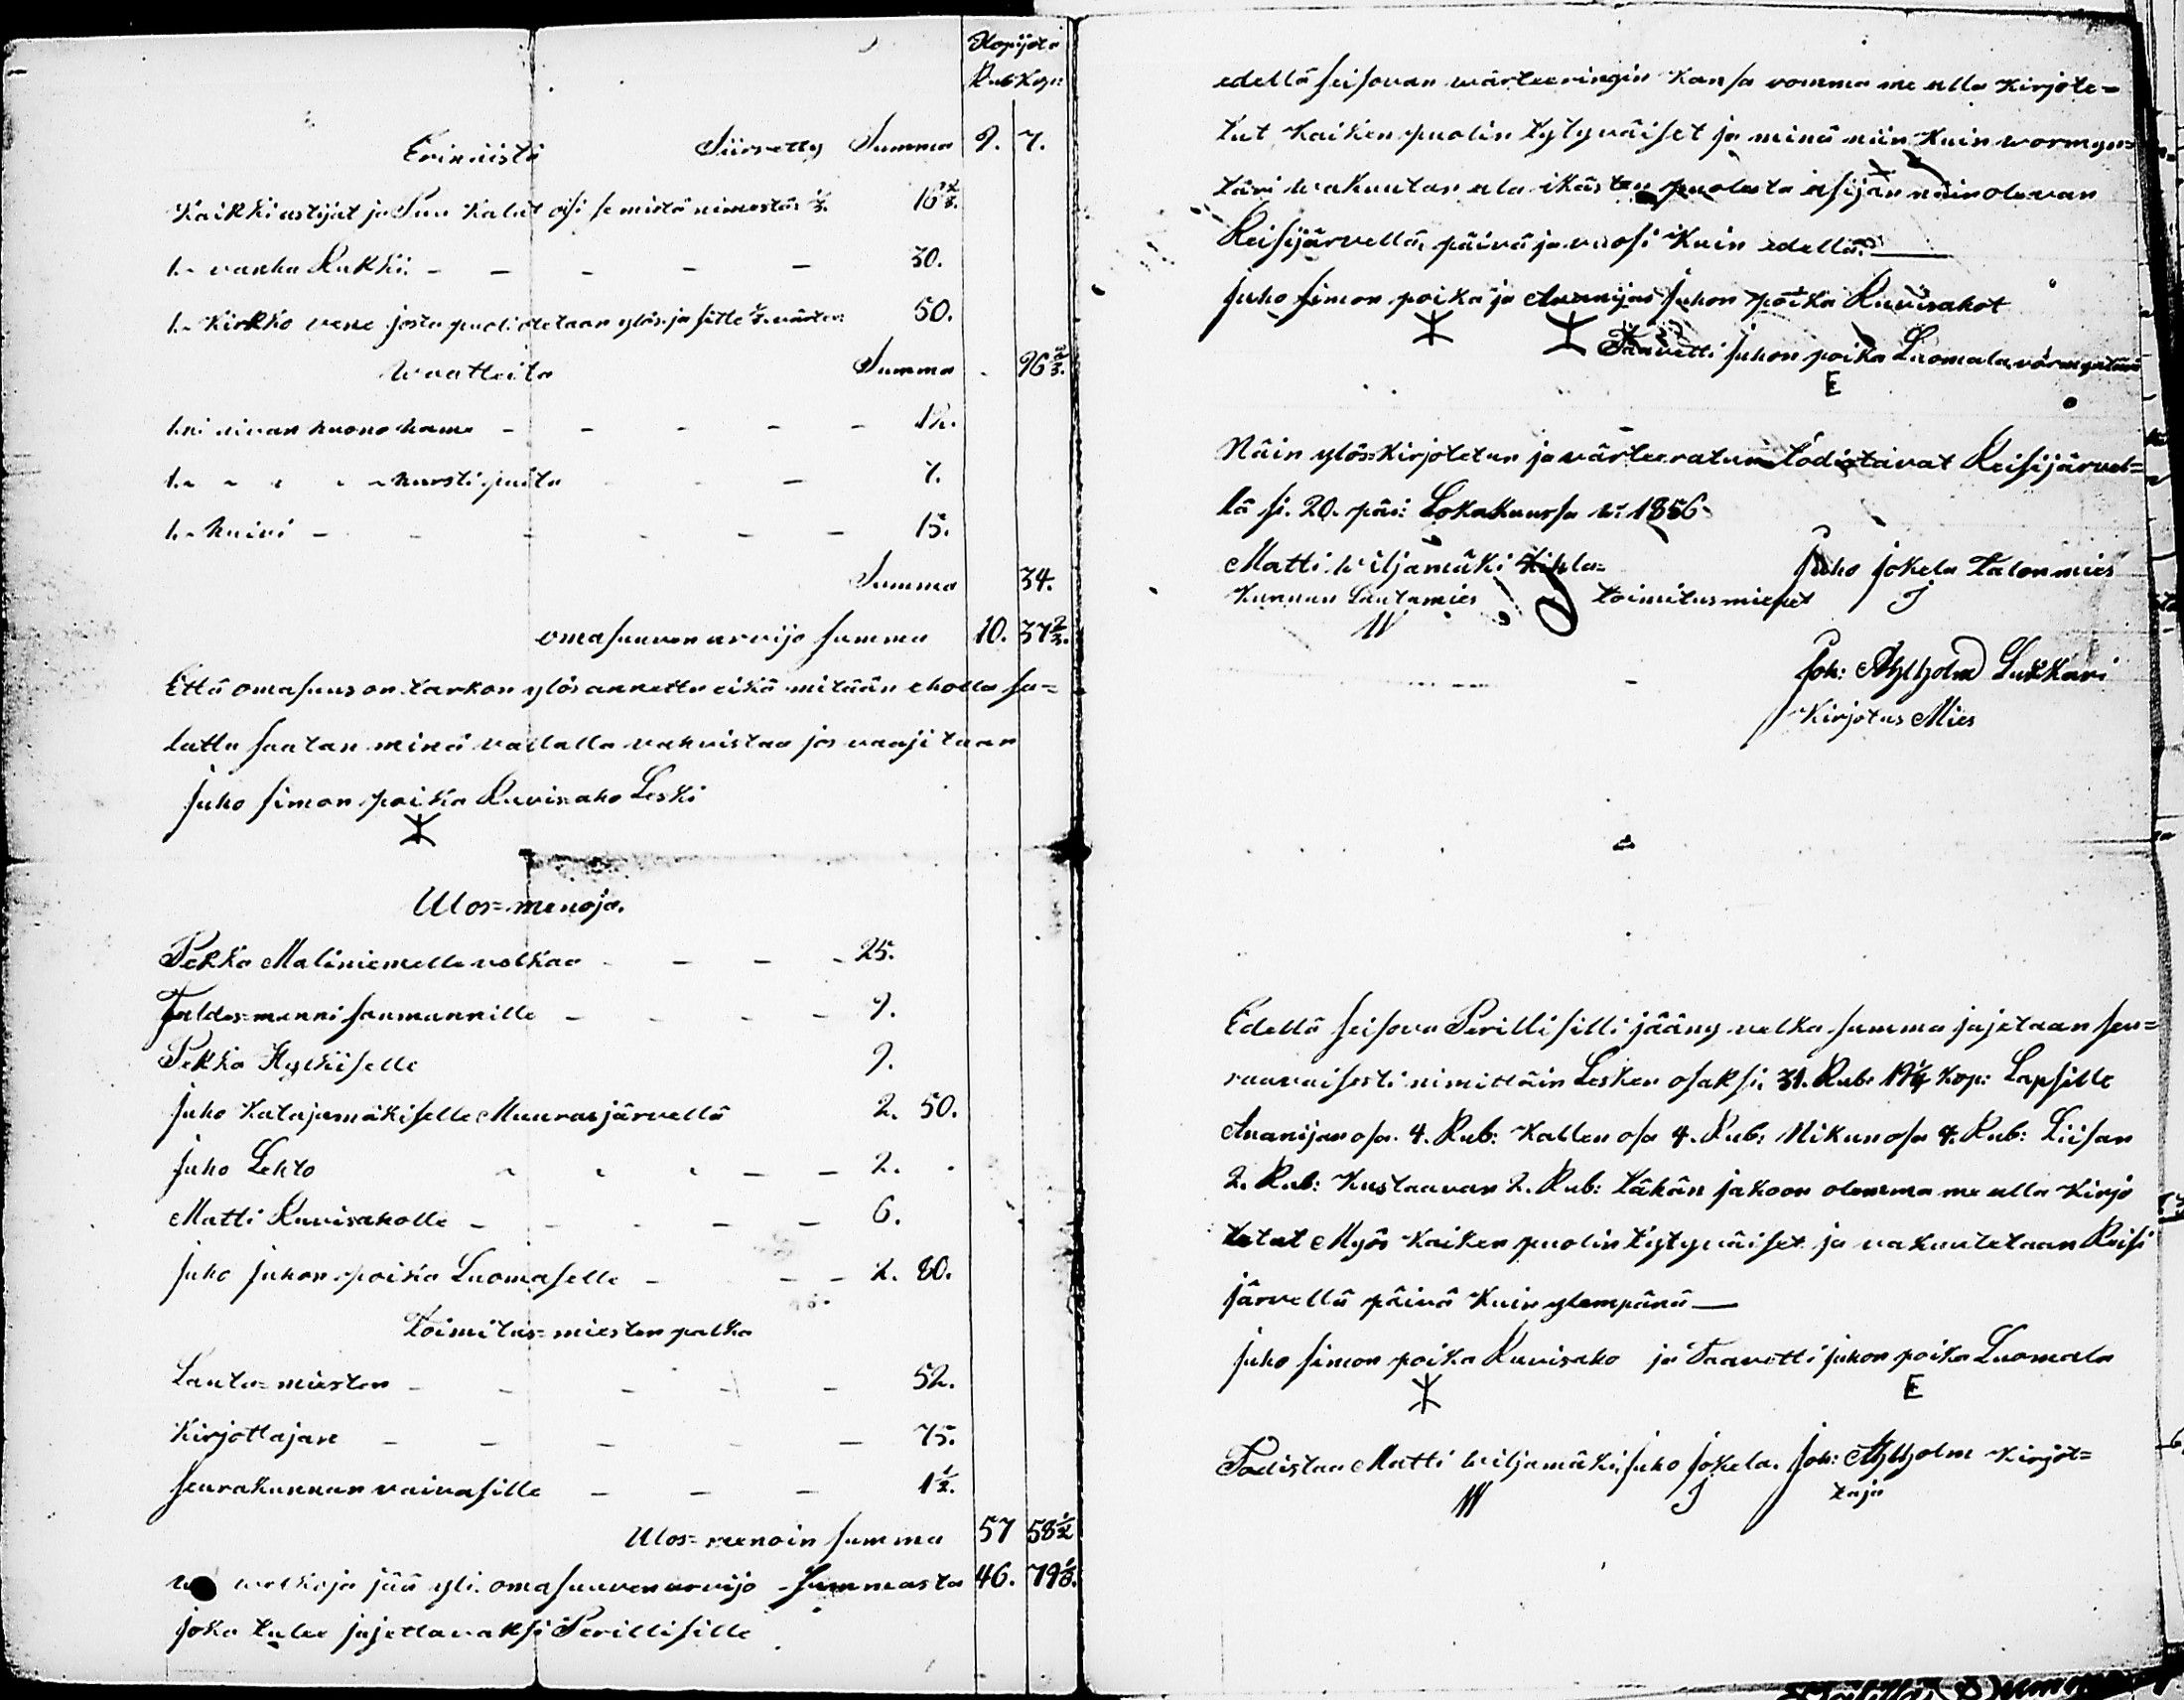 Hopijota
Rub Kop:
Erinäistä Siirretty Summa 9. 7.
Kaikki astijat ja Puu Kalut osi se mistä nimestäs ⅓. 16⅔.
1. vanha Rukki. - - - - - 30.
1. Kirkko vene josta puoli otetaan ylös ja sille ½ värter: 50.
Waatteita Summa . 96⅔.
1. huono hame - - - - - 12.
1. - - - - hursti paita - - 7.
1. huivi - - - - - - 15.
Summa 34.
omasuuven arvijo summa 10. 37⅔.
Että omasuus on tarkon ylös annettu eikä mitään eholla sa=
lattu saatan minä valalla vahvistaa jos vaajitaan
Juho Simon poika Ruvisaho Leski
Ulos=menoja.
Pekka Maliniemelle velkaa - - - - 25.
Faldes=manni Saumannille - - - - 9.
Pekka Hylkiselle 9.
Juho Katajamäkiselle Muurasjärvellä 2. 50.
Juho Lehto - - - - - 2. .
Matti Ruvisaholle - - - - - 6.
Juho Juhon poika Luomaselle - - - 2. 80.
Toimitus=miesten palka
Lauta=miesten - - - - - 52.
Kirjottajan - - - - - 75.
Seurakunnan vaivasille - - - 1½.
Ulos=menoin summa 57 58½
welkoja jää yli omasuuven arvijo - Summasta 46. 79⅙.
joka tulee jajettavaksi Perillisille
edellä seisovan wärteeringin kansa vomma me alla kirjote=
tut kaiken puolin tytyväiset ja minä niin kuin wormyn=
täri wakuutan ala ikästen puolesta asijan näin olevan
Reisijärvellä, päivä ja vuosi kuin edellä.
Juho Simon poika ja Ananijas Juhon poika Ruvisahot
Taavetti Juhon poika Luomala vörmyntäri
E
Näin ylös=kirjotetun ja värteeratun todistavat Reisijärvel=
lä si. 20. päi: Lokakuussa w: 1856
Matti Wiljamäki Kihla= Juho Jokela Talonmies
kunnan Lautamies toimitusmiehet J
W
Joh: Ahlholm Lukkari
Kirjotus Mies
Edellä seisova Perillisilli jääny velka summa jajetaan seu=
raavaisesti nimittäin Lesken osaksi 31. Rub: 19¼ kop: Lapsille
Ananijan osa. 4. Rub: Kallen osa 4. Rub: Nikun osa 4. Rub: Liisan
2. Rub: Kustaavan 2. Rub: tähän jakoon olemma me alla kirjo
tetut Myös kaiken puolin tytyväiset ja vakuutetaan Reisi
järvellä päivä kuin ylempänä
Juho Simon poika Ruvisaho ja Taavetti Juhon poika Luomala
E
Todistaa Matti Wiljamäki, Juho Jokela. Joh: Ahlholm kirjot=
W J taja